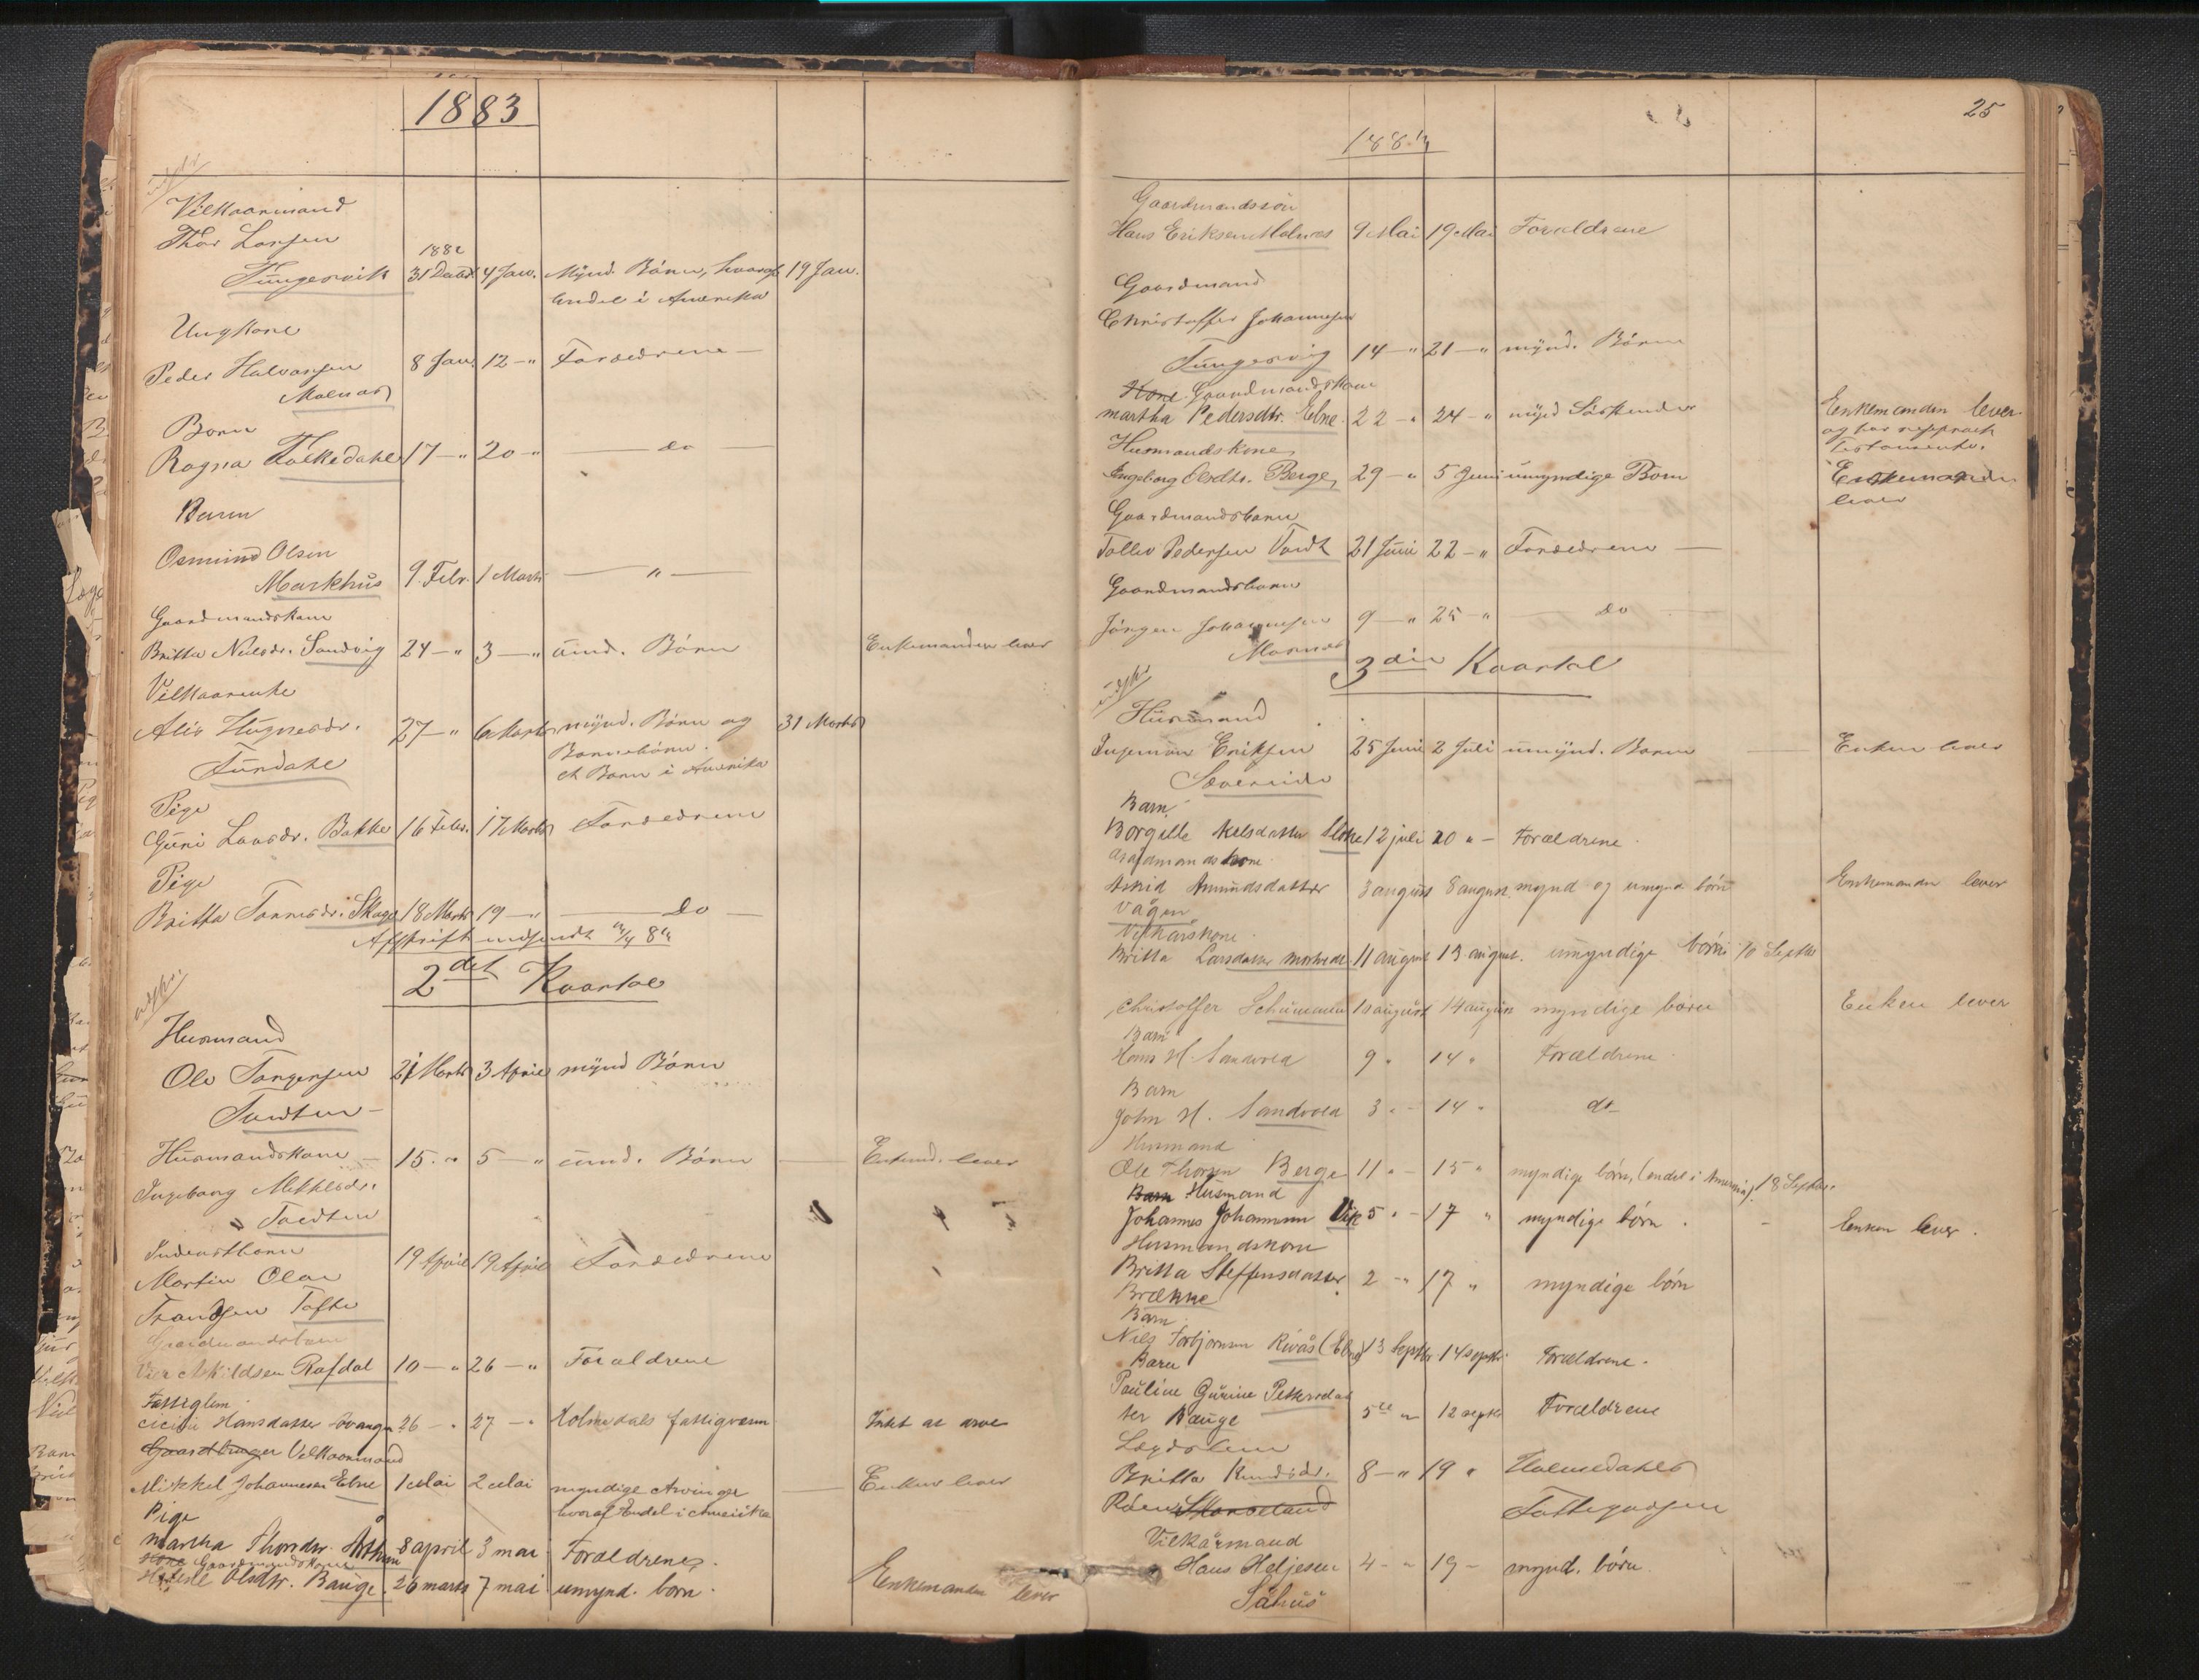 1883
Vilkaarmand
Thor Larsen
1882
Tungesvik 31 Decbr 4 Jan. Mynd. Børn, hvoraf 19 Jan.
Endel i Amerika
Ungkone
Peder Halvorsen 8 Jan. 12 — " Forældrene —
Molnæs
Barn
Ragna Folkedahl 17 — " 20 — " — do —
Barn
Osmund Olsen
Markhus 9 Febr. 1 Marts — " —
Gaardmandskone
Britta Nielsdr. Sandvig 24 — " 3 — " umd. Børn Enkemanden lever
Vilkaarenke
27 — " 6 Marts mynd. Børn og 31 Marts
Børnebørn.
et Barn i Amerika
Pige
Guri Larsdr. Bakke 16 Febr. 17 Marts Forældrene
Pige
Britta Tormodsdr. Skage 18 Marts 19 — " — do —
Afskrift indsendt
2det Kvartal
Husmand
Ole Torgersen 21 Marts 3 April mynd Børn
Husmandskone 15. " 5 — " umd. Børn — Enkemd. lever
Ingeborg
April 19 April Forældrene
19
Martin Olai
Tofte
Gaardmandsbarn
Askildsen Rafdal 10 — " 26 — " Forældrene
Fattiglem
Hansdatter 26 — " 27 — " Holmedals fattigvæsen Intet at arve
Gaardbruger Vilkaarmand
Mikkel Johannesen Ebne 1 Mai 2 Mai myndige Arvinger — Enken lever
hvoraf Endel i Amerika
Pige
Martha Thorsdtr. 8 april 3 mai Forældrene.
Kone Gaardmandskone
Olsdtr. Bauge. 26 marts 7 mai umynd. børn. Enkemanden lever
25
1883
Gaardmandssøn
Hans Eriksen Molnæs 9 Mai 19 Mai Forældrene
Gaardmand
Christoffer Johannesen
Tungesvig 14 — " 21 — " mynd. Børn
Kone Gaardmandskone
Martha Pedersdtr. Ebne. 22 — " 24 — " mynd Søskende Enkemanden lever
og har
Testamente.
Husmandskone
Ingeborg Olsdtr. Berge, 29 — " 5 Juni umyndige Børn Enkemanden
lever
Gaardmandsbarn
Tollev Pedersen 21 Juni 22 — " Forældrene —
Gaardmandsbarn
Jørgen Johannesen 9 — " 25 — " — do —
3die Kvartal
Husmand
Ingemon Eriksen 25 Juni 2 Juli umynd. Børn — Enken lever
Sævereide
Barn,
Borgille Nelsdatter 12 juli 20 " — Forældrene.
Gaardmandskone
Astrid Amundsdatter 3 august 8 august. mynd og umynd børn Enkemanden lever
Vågen
Vilkårskone
Britta Larsdatter 11 august 13 august. umyndige børn 10 Septbr
Christoffer Schumann 10 august 14 august myndige børn Enken lever
Barn
Hans H. Sandvold 9 " 14 " Forældrene.
Barn
John H. Sandvold 3 " - 14 " do
Husmand
Ole Thorsen Berge 11 " - 15 " myndige børn, (endel i Amerika) 18 Septbr.
Barn Husmand
Johannes Johannesen Vik 5 " - 17 " myndige børn. — Enken lever.
Husmandskone
Britta Steffensdatter 2 — " 17 " myndige børn
Brække
Barn
Nils Torbjørnsen Rivås (Ebne) 13 Septbr 14 septbr Forældrene.
Barn
Pauline Gurine Pettersdat
ter Bauge 5te " 12 septbr Forældrene
Lægdslem
Britta Knudsdr. 8 — " 19 " Holmedahls
Skonseland Fattigvæsen
Vilkårmand
Hans Heljesen 4 — " 19 — mynd. børn.
Såhus